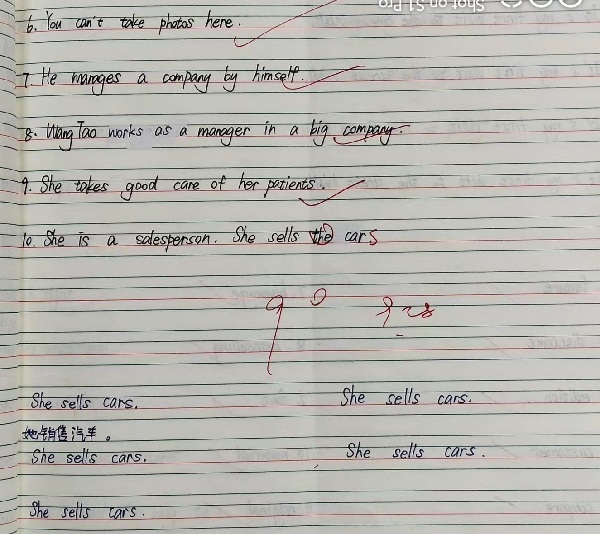 Shot on S1 Pro
6. You can't take photos here.
7. He manages a company by himself.
8. Wang Tao works as a manager in a big company.
9. She takes good care of her patients.
10. She is a salesperson. She sells the cars
90
She sells cars. She sells cars.
她销售汽车。
She sells cars. She sells cars.
She sells cars.